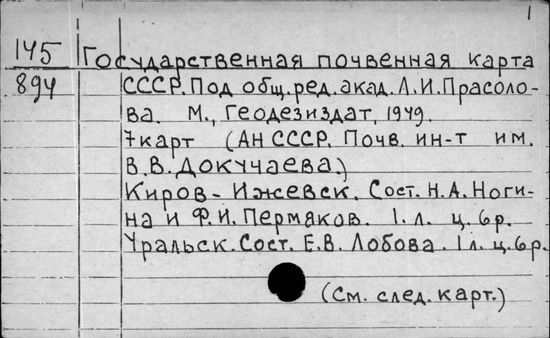 1
145 Государственная почвенная карта
894 СССР. Под общ. ред. акад. Л.И. Прасоло-
ва. М., Геодезиздат, 1949.
7 карт (АН СССР. Почв. ин-т им.
В.В. Докучаева.)
Киров - Ижевск. Сост. Н.А. Ноги-
на и Ф.И. Пермяков. 1 л. ц. 6 р.
Уральск. Сост. Е.В. Лобова. 1 л. ц. 6 р.
(См. след. карт.)